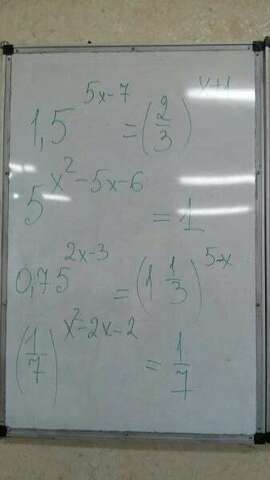 1,5^(5x-7) = (2/3)^(x+1)
5^(x²-5x-6) = 1
0,75^(2x-3) = (1 1/3)^(5-x)
(1/7)^(x²-2x-2) = 1/7